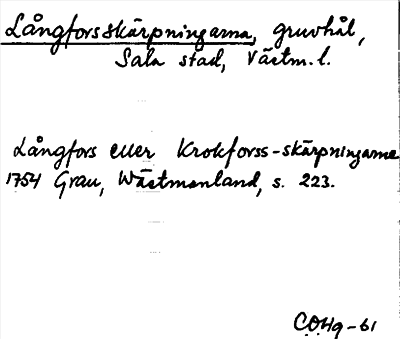 Långforsskärpningarna, gruvhål,
Sala stad, Västm. l.
Långfors eller Krokforss-skärpningarne
1754 Grau, Wästmanland, s. 223.
COHg-61